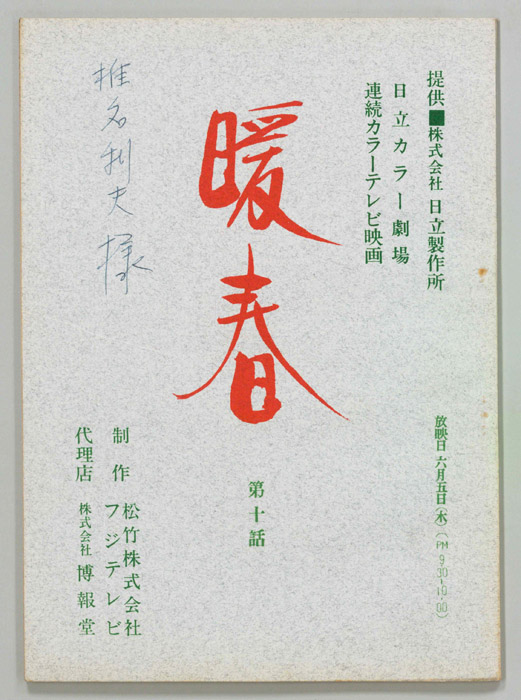 提供■株式会社 日立製作所
日立カラー劇場
連続カラーテレビ映画
暖春
第十話
椎名利夫様
放映日 六月五日(水)(PM 9.30-10.00)
制作 松竹株式会社
フジテレビ
代理店 株式会社 博報堂